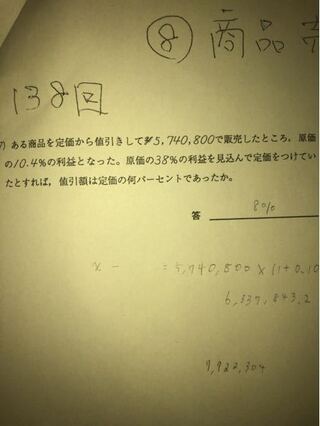 ⑧ 商品
138回
7) ある商品を定価から値引きして¥5,740,800で販売したところ，原価
の10.4%の利益となった。原価の38%の利益を見込んで定価をつけてい
たとすれば，値引額は定価の何パーセントであったか。
答 8%
x - =5,740,800×(1+0.10
6,337,843.2
7,922,304